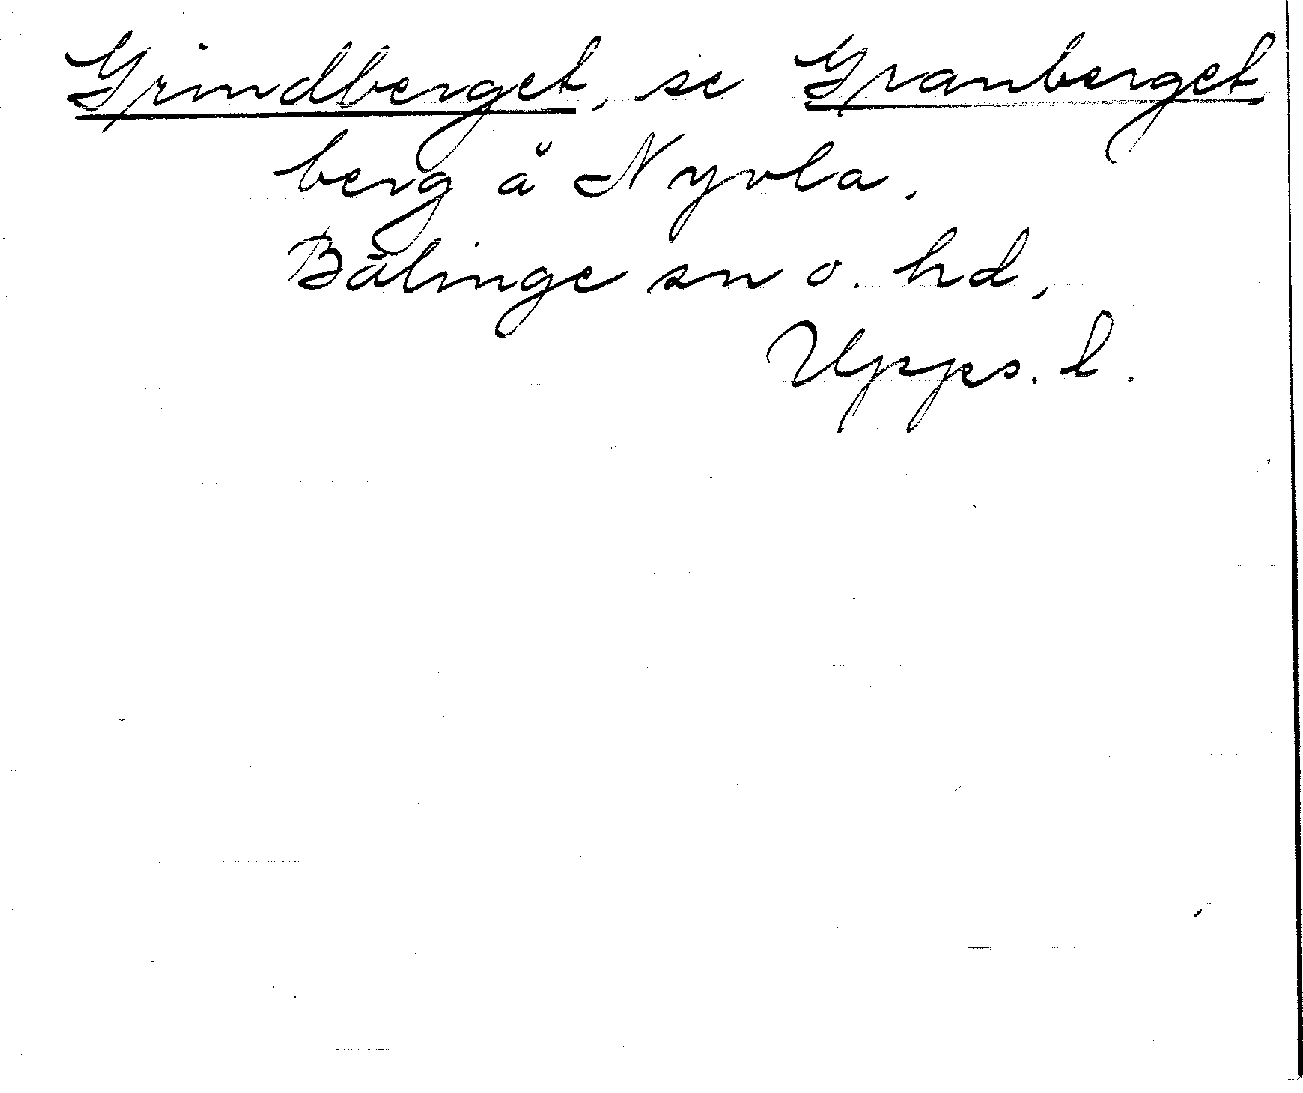 Grindberget, se Granberget,
berg å Nyvla.
Bälinge sn o. hd,
Upps. l.